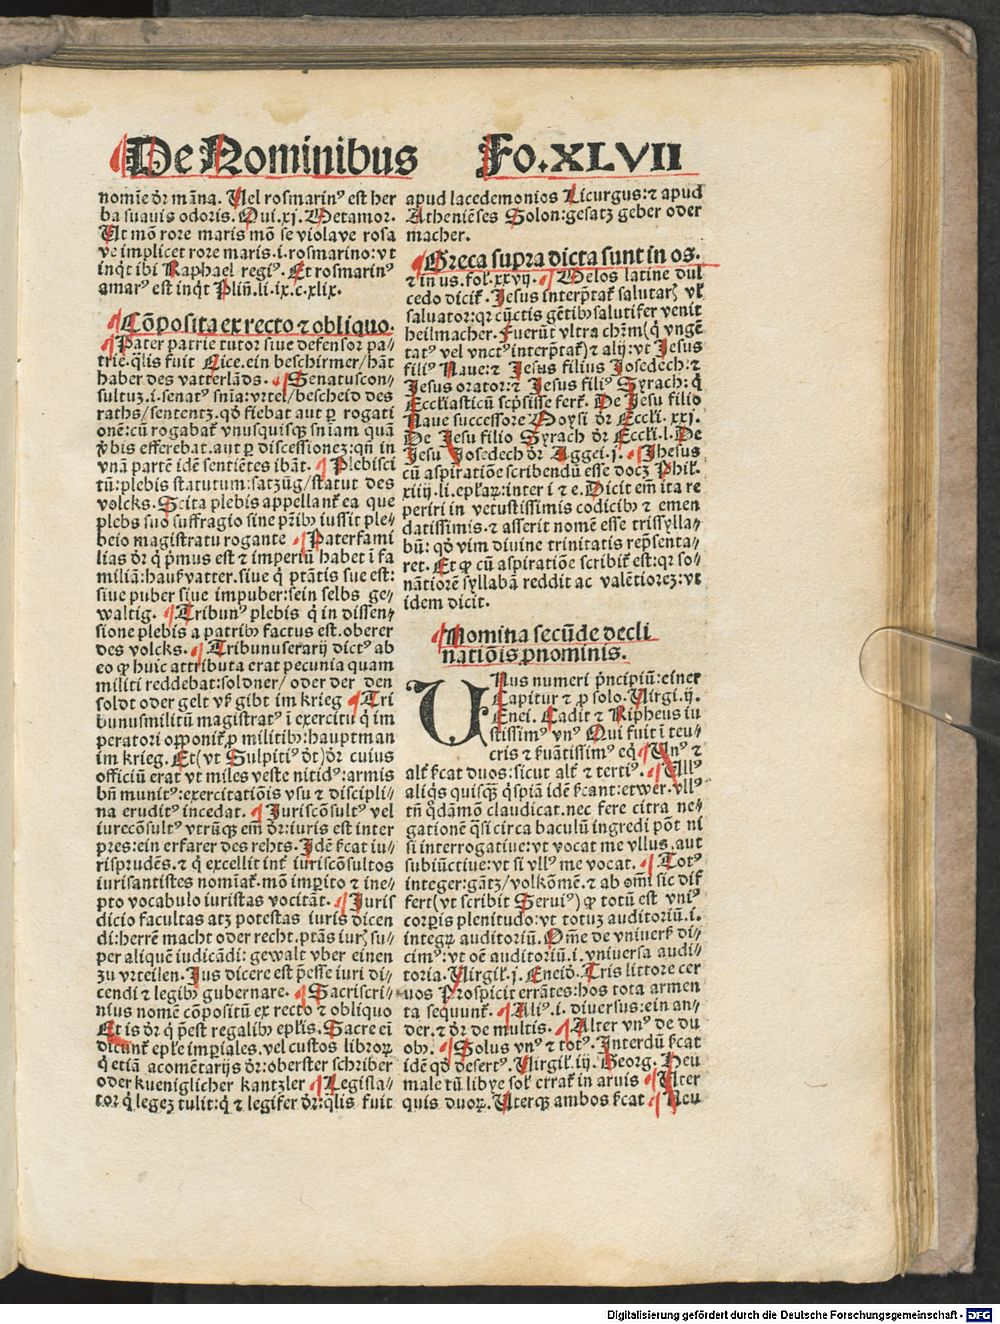 De Nominibus Fo.XLVII
nomīe dr̄ māna. Vel rosmarinꝰ est her
ba suauis odoris. Oui.xj. Metamor.
Ut mō rore maris mō se violave rosa
ve implicet rore maris.i.rosmarino: vt
inq̇t ibi Raphael regiꝰ. Et rosmarinꝰ
amarꝰ est inq̇t Plin̄.li.ix.c.xlix.
Cōposita ex recto ⁊ obliquo.
Pater patrie tutor siue defensor pa⸗
trie.q̄lis fuit Nice.ein beschirmer/hāt
haber des vatterlāds. Senatuscon⸗
sultuꝫ.i.senatꝰ snīa:vrtel/bescheid des
raths/sententꝫ.qđ fiebat aut ꝑ rogati
onē:cū rogabat̄ vnusquisqꝫ sn̄iam quā
vbis efferebat.aut ꝑ discessionez:qn̄ in
vnā partē idē sentiētes ibāt. Plebisci
tū:plebis statutum:satzūg/statut des
volcks. Scita plebis appellant̄ ea que
plebs suo suffragio sine pr̄ibꝫ iussit ple⸗
beio magistratu rogante Paterfami
lias dr̄ q̇ p̄mus est ⁊ imperiū habet ī fa
miliā:haußvatter.siue q̇ ptātis sue est:
siue puber siue impuber:sein selbs ge⸗
waltig. Tribunꝰ plebis q̇ in dissen⸗
sione plebis a patribꝫ factus est.oberer
des volcks. Tribunuserarij dictꝰ ab
eo ꝙ huic attributa erat pecunia quam
militi reddebat:soldner/oder der den
soldt oder gelt vß gibt im krieg Tri
bunusmilitū magistratꝰ ī exercitu q̇ im
peratori opponit̄ ꝓ militibꝫ:hauptman
im krieg. Et(vt Sulpitiꝰ dt̄)dr̄ cuius
officiū erat vt miles veste nitidꝰ:armis
bn̄ munitꝰ:exercitatiōis vsu ⁊ discipli⸗
na eruditꝰ incedat. Juriscōsultꝰ vel
iurecōsultꝰ vtrūqꝫ em̄ dr̄:iuris est inter
pres:ein erfarer des rehts. Idē ſcat iu⸗
risprudēs.⁊ q̇ excellit int̄ iuriscōsultos
iurisantistes nomīat̄.mō imꝑito ⁊ ine⸗
pto vocabulo iuristas vocitāt. Juris
dicio facultas atꝫ potestas iuris dicen
di:herrē macht oder recht.ptās iurꝭ su⸗
per aliquē iudicādi:gewalt vber einen
zu vrteilen. Jus dicere est p̄esse iuri di⸗
cendi ⁊ legibꝫ gubernare. Sacriscri⸗
nius nomē cōpositū ex recto ⁊ obliquo
Et is dr̄ q̇ p̄est regalibꝫ epl̄is. Sacre eī
dicunt̄ epl̄e imꝑiales.vel custos libroꝝ
q̇ etiā acomētarijs dr̄:oberster schriber
oder kueniglicher kantzler Legisla⸗
tor q̇ legeꝫ tulit:q̇ ⁊ legifer dr̄:q̄lis fuit
apud lacedemonios Licurgus:⁊ apud
Atheniēses Solon:gesatz geber oder
macher.
Greca supra dicta sunt in os.
⁊ in us.fol.xxvij. Melos latine dul
cedo dicit̄. Jesus interp̄tat̄ salutarꝭ vl̄
saluator:qꝛ cūctis gētibꝫ salutifer venit
heilmacher. Fuerūt vltra chr̄m(q̇ vngē
tatꝰ vel vnctꝰ interp̄tat̄)⁊ alij:vt Jesus
filiꝰ Naue:⁊ Jesus filius Josedech:⁊
Jesus orator:⁊ Jesus filiꝰ Syrach:q̇
Eccl̄iasticū scp̄sisse fert̄. De Jesu filio
Naue successore Moysi dr̄ Eccli.xxj.
De Jesu filio Syrach dr̄ Eccli.l. De
Jesu Josedech dr̄ Aggei.j. Jhesus
cū aspiratiōe scribendū esse docꝫ Phil.
xiiij.li.epl̄aꝝ:inter i ⁊ e. Dicit em̄ ita re
periri in vetustissimis codicibꝫ ⁊ emen
datissimis.⁊ asserit nomē esse trissylla⸗
bū:qđ vim diuine trinitatis rep̄senta⸗
ret. Et ꝙ cū aspiratiōe scribit̄ est:qꝛ so⸗
nātiorē syllabā reddit ac valētiorez:vt
idem dicit.
Nomina secūde decli
natiōis ꝓnominis.
Unus numeri p̄ncipiū:einer
Capitur ⁊ ꝓ solo. Virgi.ij.
Enei. Cadit ⁊ Ripheus iu
stissimꝰ vnꝰ Qui fuit ī teu⸗
cris ⁊ ẜuātissimꝰ eq̇ Unꝰ ⁊
alt̄ ſcat duos:sicut alt̄ ⁊ tertiꝰ. Ullꝰ
aliq̇s quisq̇ꝫ q̇spiā idē ſcant:etwer.vllꝰ
tn̄ q̇dāmō claudicat.nec fere citra ne⸗
gationē q̄si circa baculū ingredi pōt ni
si interrogatiue:vt vocat me vllus.aut
subiūctiue:vt si vllꝰ me vocat. Totꝰ
integer:gātz/volkōmē.⁊ ab om̄i sic dif
fert(vt scribit Seruiꝰ)ꝙ totū est vniꝰ
corꝑis plenitudo:vt totuꝫ auditoriū.i.
integꝝ auditoriū. Om̄e de vniuers̄ di⸗
cimꝰ:vt oē auditoriū.i.vniuersa audi⸗
toria. Virgil.j. Eneiđ. Tris littore cer
uos Prospicit errātes:hos tota armen
ta sequunt̄. Aliꝰ.i.diuersus:ein an⸗
der.⁊ dr̄ de multis. Alter vnꝰ de du
obꝫ. Solus vnꝰ ⁊ totꝰ. Interdū ſcat
idē qđ desertꝰ. Virgil.iij. Georg. Heu
male tū libye sol̄ errat̄ in aruis Uter
quis duoꝝ. Uterqꝫ ambos ſcat Neu
Digitalisierung gefördert durch die Deutsche Forschungsgemeinschaft - DFG